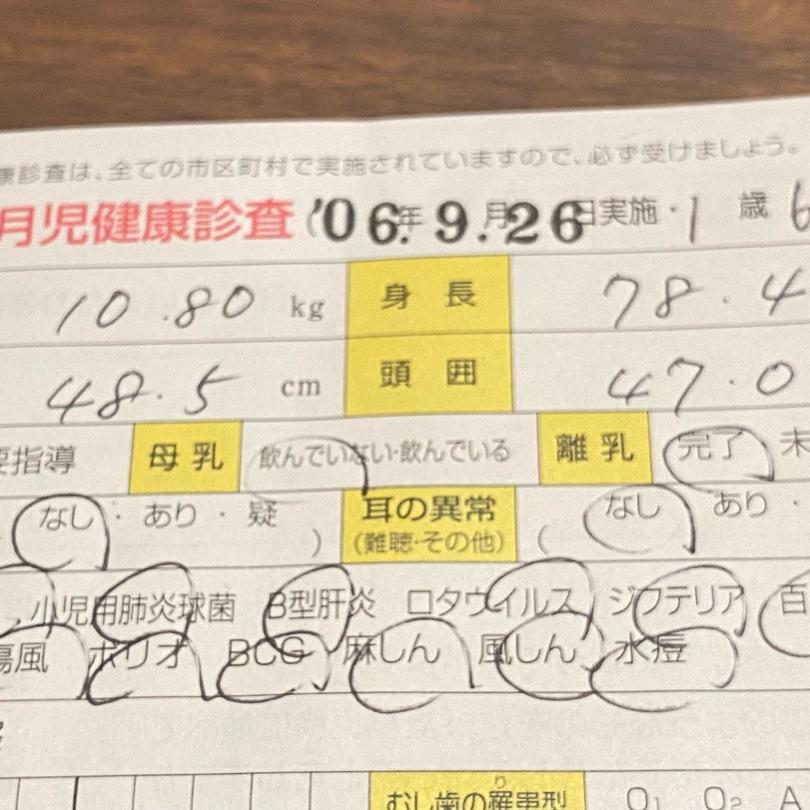 康診査は、全ての市区町村で実施されていますので、必ず受けましょう。
月児健康診査 ('06.年 9.月26日実施・1 歳 6
10.80 kg 身長 78.4
48.5 cm 頭囲 47.0
要指導 母乳 飲んでいない・飲んでいる 離乳 完了 未
なし・あり・疑 耳の異常 なし あり・
) (難聴・その他) (
小児用肺炎球菌 B型肝炎 ロタウイルス ジフテリア 百
傷風 ポリオ BCG 麻しん 風しん 水痘
むし歯の罹患型 O₁ O₂ A